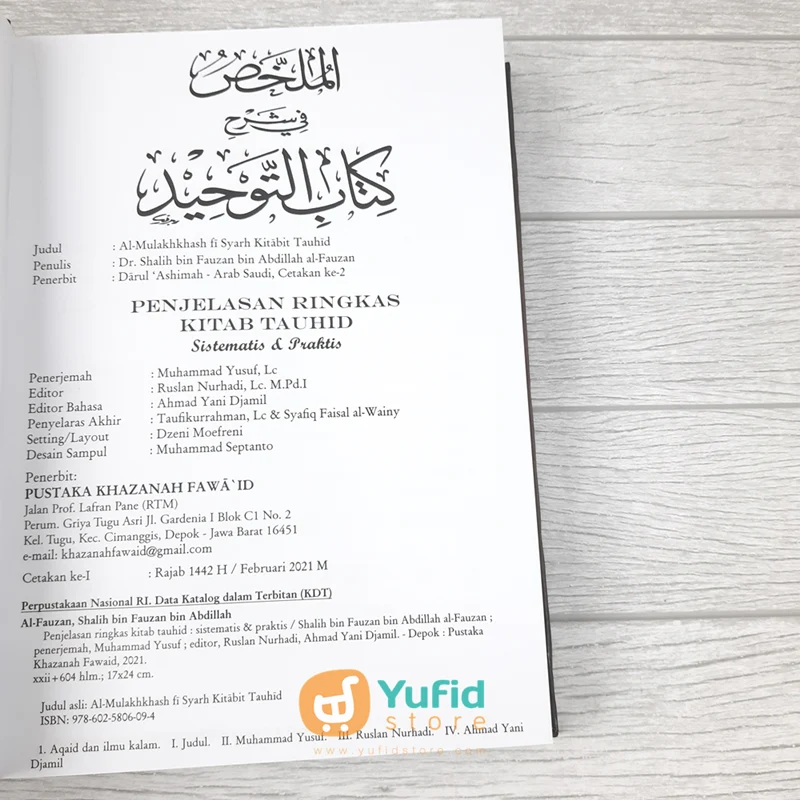 المُلَخَّصُ
في شَرْحِ
كِتَابِ التَّوْحِيْدِ
Judul : Al-Mulakhkhash fî Syarh Kitâbit Tauhid
Penulis : Dr. Shalih bin Fauzan bin Abdillah al-Fauzan
Penerbit : Dârul ‘Ashimah - Arab Saudi, Cetakan ke-2
PENJELASAN RINGKAS
KITAB TAUHID
Sistematis & Praktis
Penerjemah : Muhammad Yusuf, Lc
Editor : Ruslan Nurhadi, Lc. M.Pd.I
Editor Bahasa : Ahmad Yani Djamil
Penyelaras Akhir : Taufikurrahman, Lc & Syafiq Faisal al-Wainy
Setting/Layout : Dzeni Moefreni
Desain Sampul : Muhammad Septanto
Penerbit:
PUSTAKA KHAZANAH FAWÂ`ID
Jalan Prof. Lafran Pane (RTM)
Perum. Griya Tugu Asri Jl. Gardenia I Blok C1 No. 2
Kel. Tugu, Kec. Cimanggis, Depok - Jawa Barat 16451
e-mail: khazanahfawaid@gmail.com
Cetakan ke-I : Rajab 1442 H / Februari 2021 M
Perpustakaan Nasional RI. Data Katalog dalam Terbitan (KDT)
Al-Fauzan, Shalih bin Fauzan bin Abdillah
Penjelasan ringkas kitab tauhid : sistematis & praktis / Shalih bin Fauzan bin Abdillah al-Fauzan ;
penerjemah, Muhammad Yusuf ; editor, Ruslan Nurhadi, Ahmad Yani Djamil. - Depok : Pustaka
Khazanah Fawaid, 2021.
xxii + 604 hlm.; 17x24 cm.
Judul asli: Al-Mulakhkhash fî Syarh Kitâbit Tauhid
ISBN: 978-602-5806-09-4
Yufid
store
www.yufidstore.com
1. Aqaid dan ilmu kalam. I. Judul. II. Muhammad Yusuf. III. Ruslan Nurhadi. IV. Ahmad Yani
Djamil